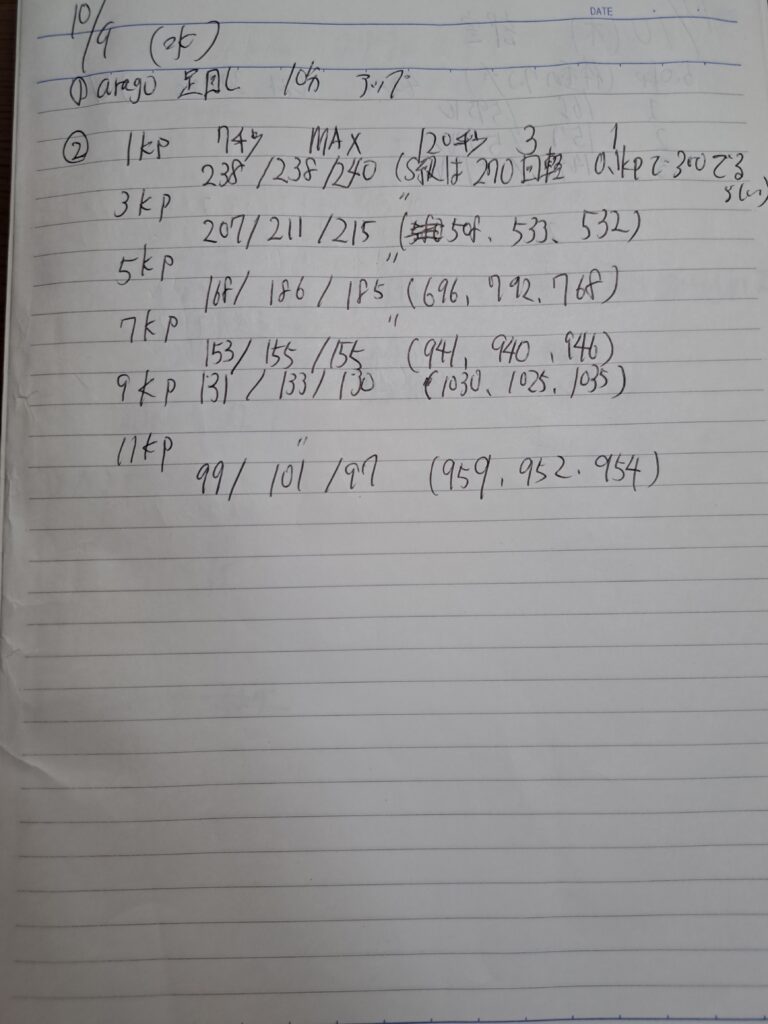 DATE
10/9 (水)
① arago 足回し 10分 アップ
② 1kp 7秒 MAX 120秒 3 1
238/238/240 (S級は270回転 0.1kpで300でる
らしい)
3kp 〃
207/211/215 (508、533、532)
5kp 〃
168/186/185 (696、792、768)
7kp 〃
153/155/155 (941、940、946)
9kp 131/133/130 (1030、1025、1035)
11kp 〃
99/101/97 (959、952、954)